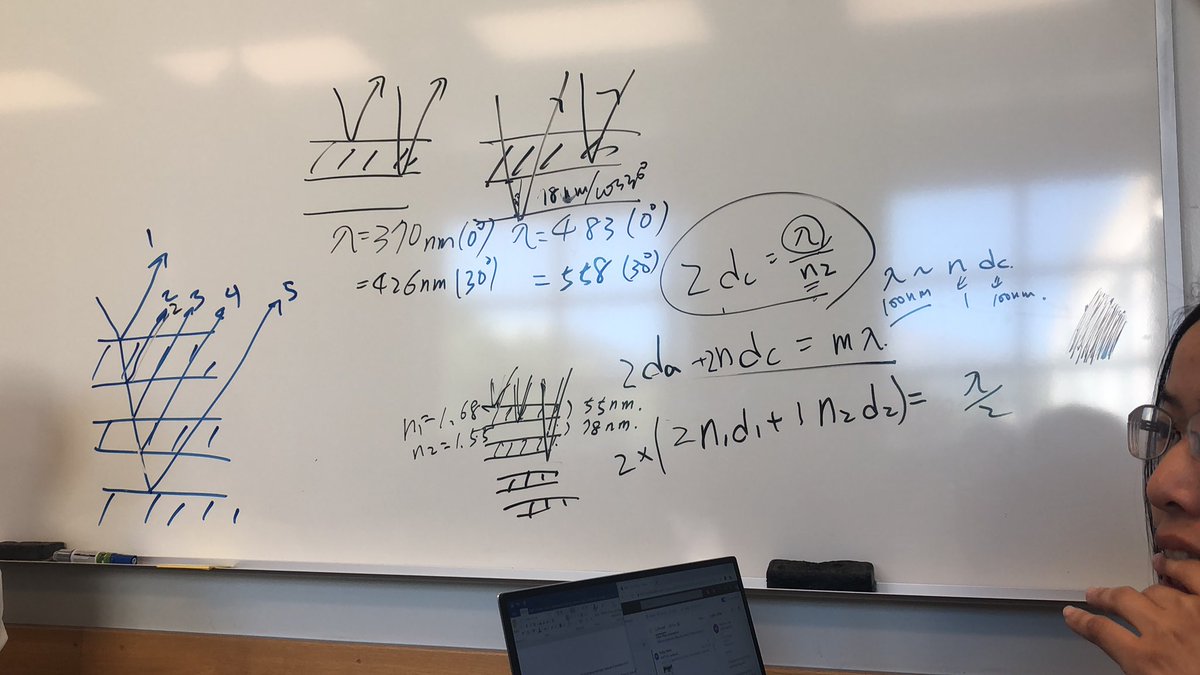 18nm/cos30°
λ=370nm(0°) λ=483(0°)
=426nm(30°) =558(30°)
2dc = λ/n2
λ ~ n dc.
100nm 1 100nm.
1 2 2 3 4 5
2da+2ndc = mλ.
n1=1.68 ) 55nm.
n2=1.55 ) 78nm.
2×(2n1d1+1n2d2)= λ/2